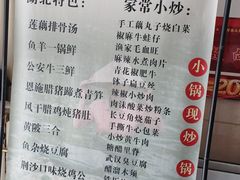 湖北特色:
莲藕排骨汤
鱼羊一锅鲜
公安牛三鲜
恩施腊猪蹄煮青笋
风干腊鸡炖猪肚
黄陂三合
鱼杂烧豆腐
荆沙口味烧鸡公
家常小炒:
手工藕丸子烧白菜
椒麻牛蛙仔
渔家毛血旺
麻辣水煮肉片
青花椒肥牛
毛氏红烧肉
辣椒小炒肉
肉沫酸菜炒粉条
长豆角烧茄子
手撕牛心包菜
小炒黄牛肉
糖醋里脊
武汉臭豆腐
醋溜木须
小锅现炒
小锅